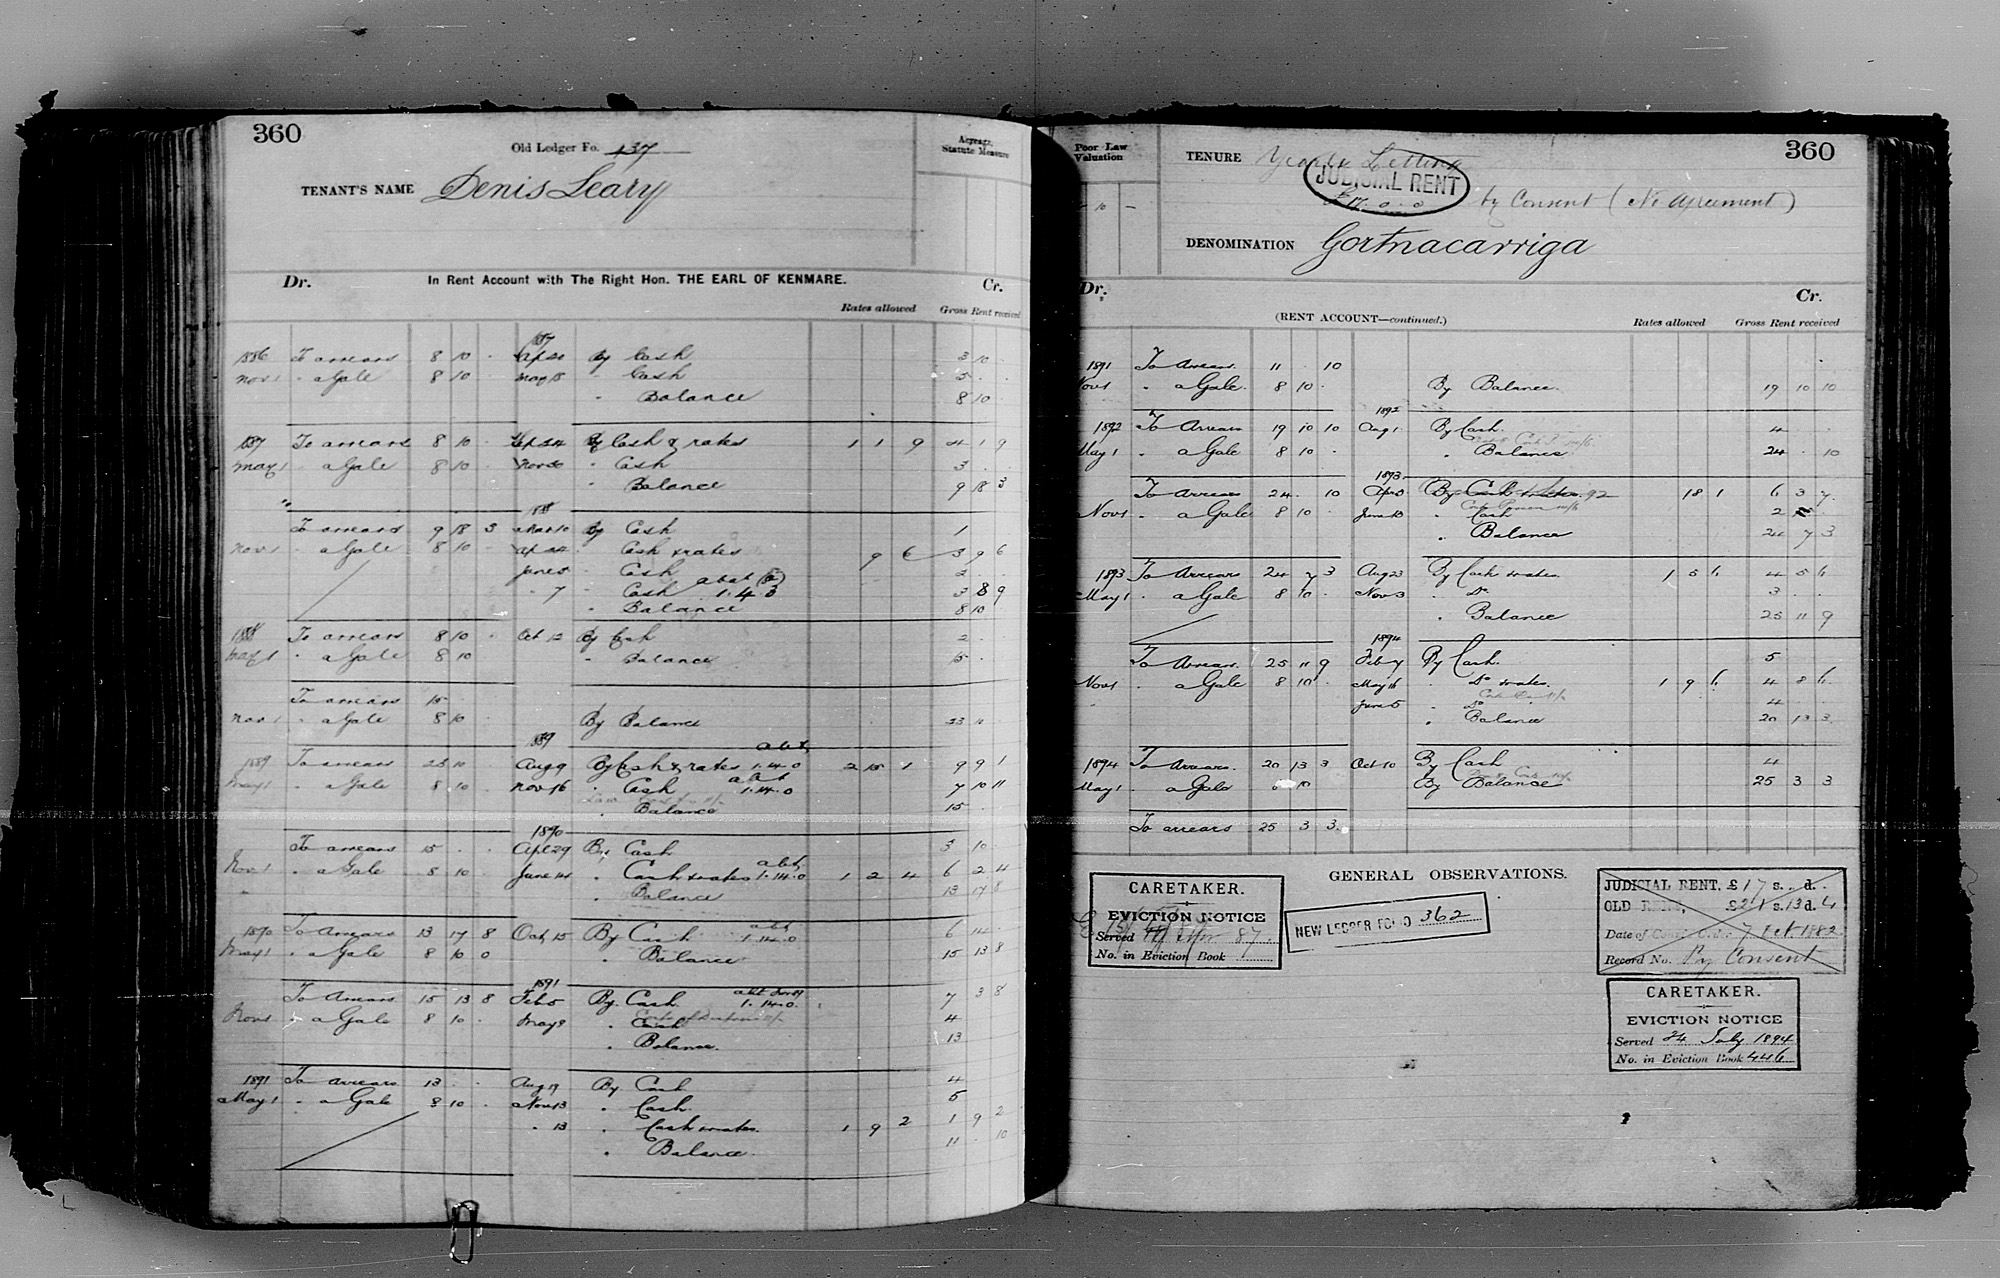 360
Old Ledger Fo. 137
TENANT'S NAME Denis Leary
Acreage, Statute Measure
Dr. In Rent Account with The Right Hon. THE EARL OF KENMARE. Cr.
Rates allowed Gross Rent received
1887
1886 To arrears 8 10 - Ap 20 By Cash 3 10
Nov 1 " a Gale 8 10 May 18 " Cash 5 . .
" Balance 8 10
1887 To arrears 8 10 - Sep 24 By Cash & rates 1 1 9 4 1 9
May 1 " a Gale 8 10 Nov 30 " Cash 3 . .
" Balance 9 18 3
1888
To arrears 9 18 3 Mar 10 By Cash 1
Nov 1 " a Gale 8 10 - Ap 24 " Cash & rates 9 6 3 9 6
June 5 " Cash 2
" 7 " Cash abat 1.4.3 3 8 9
" Balance 8 10
1888 To arrears 8 10 - Oct 12 By Cash 2
May 1 " a Gale 8 10 " Balance 15 .
To arrears 15
Nov 1 " a Gale 8 10 By Balance 23 10
1889 abt
1889 To arrears 23 10 Aug 9 By Cash & rates 1.14.0 2 15 1 9 9 1
May 1 " a Gale 8 10 Nov 16 " Cash abt 1.14.0 7 10 11
" Balance 15
1890
To arrears 15 . . Apl 29 By Cash 3 10
Nov 1 " a Gale 8 10 June 14 " Cash & rates abt 1.14.0 1 2 4 6 2 4
" Balance 13 17 8
1890 To Arrears 13 17 8 Oct 15 By Cash abt 1.14.0 6 14
May 1 " a Gale 8 10 0 " Balance 15 13 8
1891
To Arrears 15 13 8 Feb 5 By Cash 1.14.0 7 3 8
Nov 1 " a Gale 8 10 . May 9 " Cash 4
" Balance 13
1891 To arrears 13 . . Aug 17 By Cash 4
May 1 " a Gale 8 10 . Nov 13 " Cash 5
" 13 " Cash & rates 1 9 2 1 9 2
" Balance 11 . 10
360
Poor Law Valuation
- 10 -
TENURE Yearly Letting
JUDICIAL RENT
£17.0.0 by Consent (No Agreement)
DENOMINATION Gortnacarriga
Dr. Cr.
(RENT ACCOUNT—continued.) Rates allowed Gross Rent received
1891 To Arrears 11 . 10
Nov 1 " a Gale 8 10 . By Balance 19 10 10
1892
1892 To Arrears 19 10 10 Aug 1 By Cash 4
May 1 " a Gale 8 10 . " Balance 24 . 10
1893
To Arrears 24 . 10 Apr 8 By Cash & rates 92 18 1 6 3 7
Nov 1 " a Gale 8 10 . June 13 " Cash 2
" Balance 24 7 3
1893 To Arrears 24 7 3 Aug 23 By Cash & rates 1 5 6 4 5 6
May 1 " a Gale 8 10 . Nov 3 " Do 3 . .
" Balance 25 11 9
1894
To Arrears 25 11 9 Feb 7 By Cash 5
Nov 1 " a Gale 8 10 . May 16 " Do & rates 1 9 6 4 8 6
June 5 " Do 4
" Balance 20 13 3
1894 To Arrears 20 13 3 Oct 10 By Cash 4
May 1 " a Gale 8 10 By Balance 25 3 3
To arrears 25 3 3
GENERAL OBSERVATIONS.
CARETAKER.
EVICTION NOTICE
Served 87
No. in Eviction Book
NEW LEDGER FOLIO 362
JUDICIAL RENT, £17 s. - d. -
OLD RENT, £21 s. 13 d. 4
Date of Court Order 7 Oct 1882
Record No. By Consent
CARETAKER.
EVICTION NOTICE
Served 24 July 1894
No. in Eviction Book 446